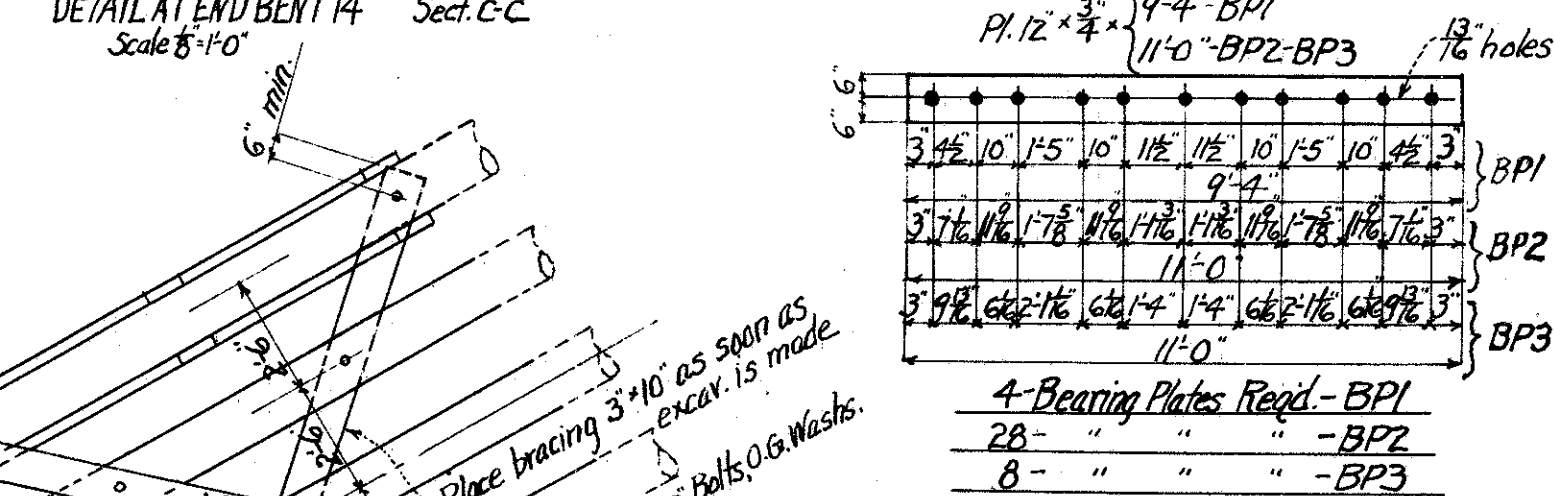 DETAIL AT END BENT 14 Sect. C-C
Scale 1/8"=1'-0"
6" min.
2'-6"
2'-6"
Place bracing 3"x10" as soon as
excav. is made
Bolts, O.G. Washs.
Pl. 12" x 3/4" x
9'-4"-BP1
11'-0"-BP2-BP3
13/16" holes
6"
6"
3" 4 1/2" 10" 1'-5" 10" 11 1/2" 11 1/2" 10" 1'-5" 10" 4 1/2" 3"
9'-4"
BP1
3" 7 1/16" 11 9/16" 1'-7 5/8" 11 9/16" 1'-1 3/16" 1'-1 3/16" 11 9/16" 1'-7 5/8" 11 9/16" 7 1/16" 3"
11'-0"
BP2
3" 9 13/16" 6 1/16" 2'-1 1/16" 6 1/16" 1'-4" 1'-4" 6 1/16" 2'-1 1/16" 6 1/16" 9 13/16" 3"
11'-0"
BP3
4-Bearing Plates Reqd.-BP1
28- " " " -BP2
8- " " " -BP3